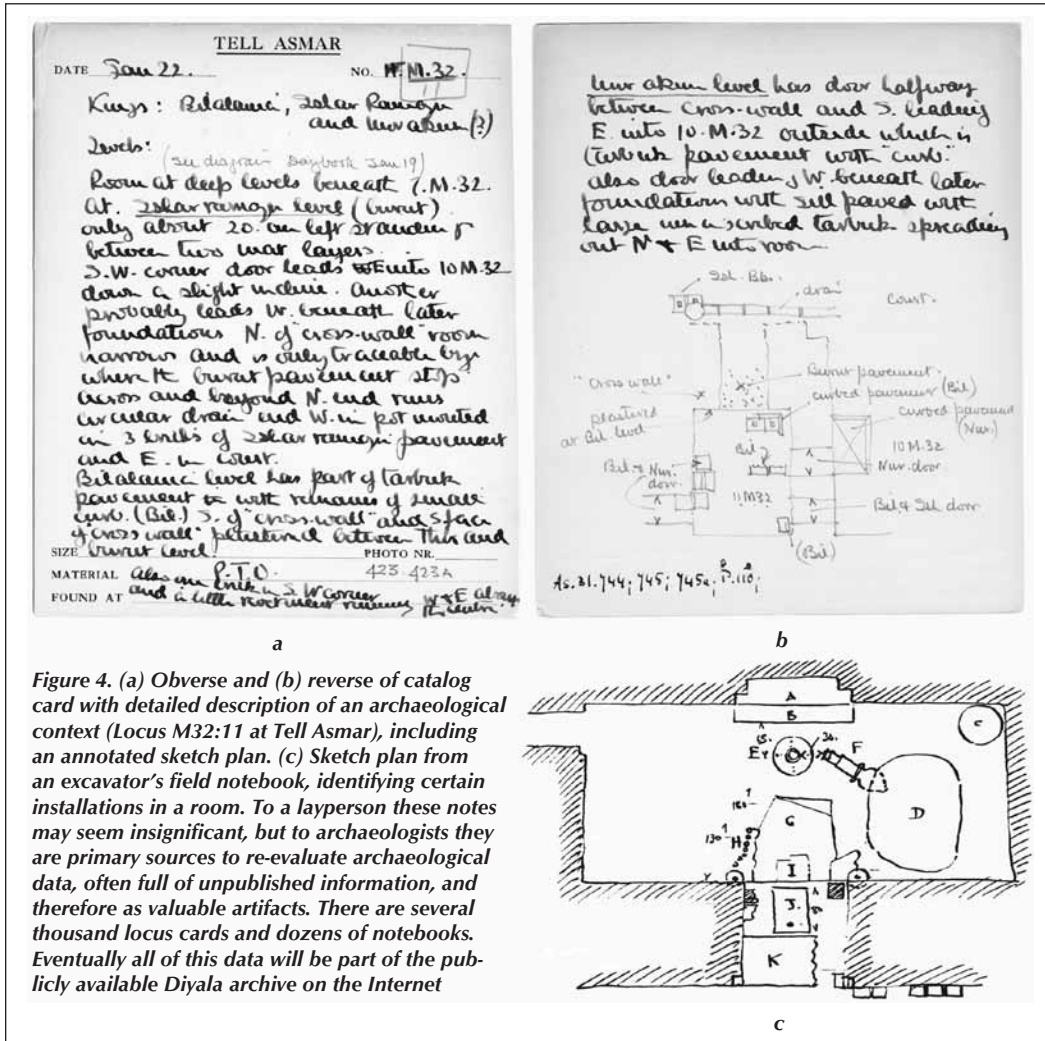 TELL ASMAR
DATE Jan 22. NO. M.32.
Kings: Bilalama, Ishar Ramazu
and Nur akum (?)
Levels:
(see diagram Daybook Jan 19)
Room at deep levels beneath 7.M.32.
At Ishar ramazu level (burnt)
only about 20 cm left standing
between two mat layers.
S.W. corner door leads E into 10 M.32
down a slight incline. Another
probably leads W. beneath later
foundations N. of "cross-wall" room
narrows and is only traceable by
where the burnt pavement stops
across and beyond N. end runs
circular drain end W. in pot mouted
in 3 bricks of Ishar ramazu pavement
and E. in court.
Bilalama level has part of tarbuk
pavement with remains of small
curb. (Bil.) S. of "cross-wall" and S face
of "cross wall" plastered between this and
SIZE burnt level. PHOTO NR.
MATERIAL P.T.O. 423.423A
also one brick in S.W corner
FOUND AT and a little running W & E along
the centre.
a
Nur akum level has door halfway
between cross-wall and S. leading
E. into 10.M.32 outside which is
tarbuk pavement with "curb."
also door leading W. beneath later
foundations with sill paved with
large uninscribed tarbuk spreading
out N & E into room
Ish. Bb.
drain
Court.
"Cross wall"
Burnt pavement.
curbed pavement (Bil)
plastered
at Bil level
curbed pavement
(Nur.)
10 M.32
Bil
Nur. door
Bil. & Nur.
door.
11 M32
Bil & Ish door
(Bil)
As. 31. 744; 745; 745a; P.110;
b
Figure 4. (a) Obverse and (b) reverse of catalog
card with detailed description of an archaeological
context (Locus M32:11 at Tell Asmar), including
an annotated sketch plan. (c) Sketch plan from
an excavator's field notebook, identifying certain
installations in a room. To a layperson these notes
may seem insignificant, but to archaeologists they
are primary sources to re-evaluate archaeological
data, often full of unpublished information, and
therefore as valuable artifacts. There are several
thousand locus cards and dozens of notebooks.
Eventually all of this data will be part of the pub-
licly available Diyala archive on the Internet
A
B
C
E
F
D
G
H
I
J.
K
c